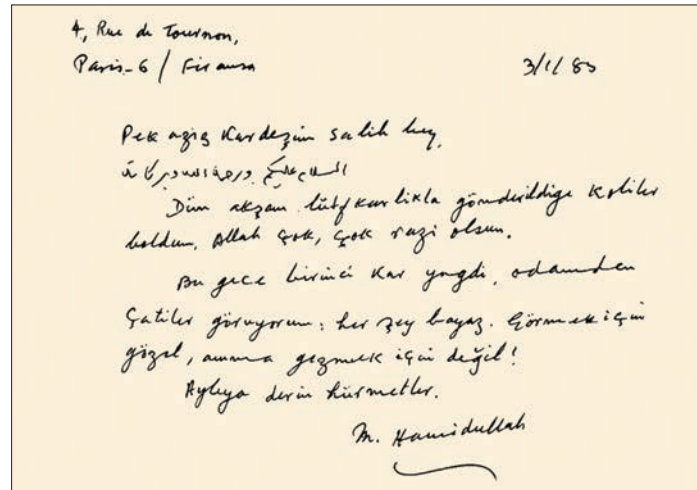 4, Rue de Tournon,
Paris-6 / Firansa
3/1/83
Pek aziz Kardeşim Salih bey,
السلام عليكم ورحمة الله وبركاته
Dün akşam lütfkarlikla gönderildige Koliler
boldum. Allah çok, çok razi olsun.
Bu gece birinci Kar yagdi, odamden
Çatiler göruyorum: her şey bayaz. Görmek için
gözel, amma gezmek için değil!
Ayleya derin hürmetler.
M. Hamidullah